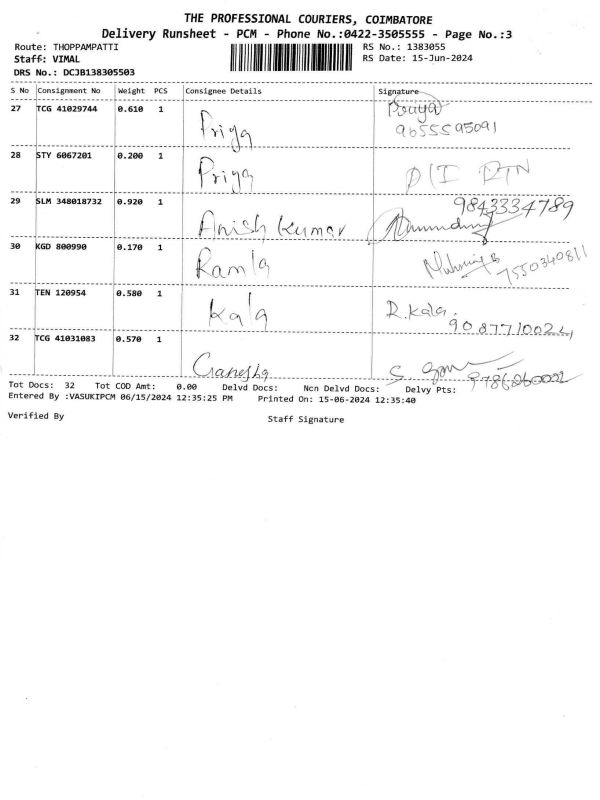 THE PROFESSIONAL COURIERS, COIMBATORE
Delivery Runsheet - PCM - Phone No.:0422-3505555 - Page No.:3
Route: THOPPAMPATTI RS No.: 1383055
Staff: VIMAL RS Date: 15-Jun-2024
DRS No.: DCJB138305503
S No Consignment No Weight PCS Consignee Details Signature
27 TCG 41029744 0.610 1 Priya Priya
9655595091
28 STY 6067201 0.200 1 Priya D/I RTN
29 SLM 348018732 0.920 1 Anish Kumar 9843334789
30 KGD 800990 0.170 1 Ramla 7550340811
31 TEN 120954 0.580 1 Kala R.Kala.
9087710024
32 TCG 41031083 0.570 1 Ganesha S.
9786260002
Tot Docs: 32 Tot COD Amt: 0.00 Delvd Docs: Ncn Delvd Docs: Delvy Pts:
Entered By :VASUKIPCM 06/15/2024 12:35:25 PM Printed On: 15-06-2024 12:35:40
Verified By Staff Signature